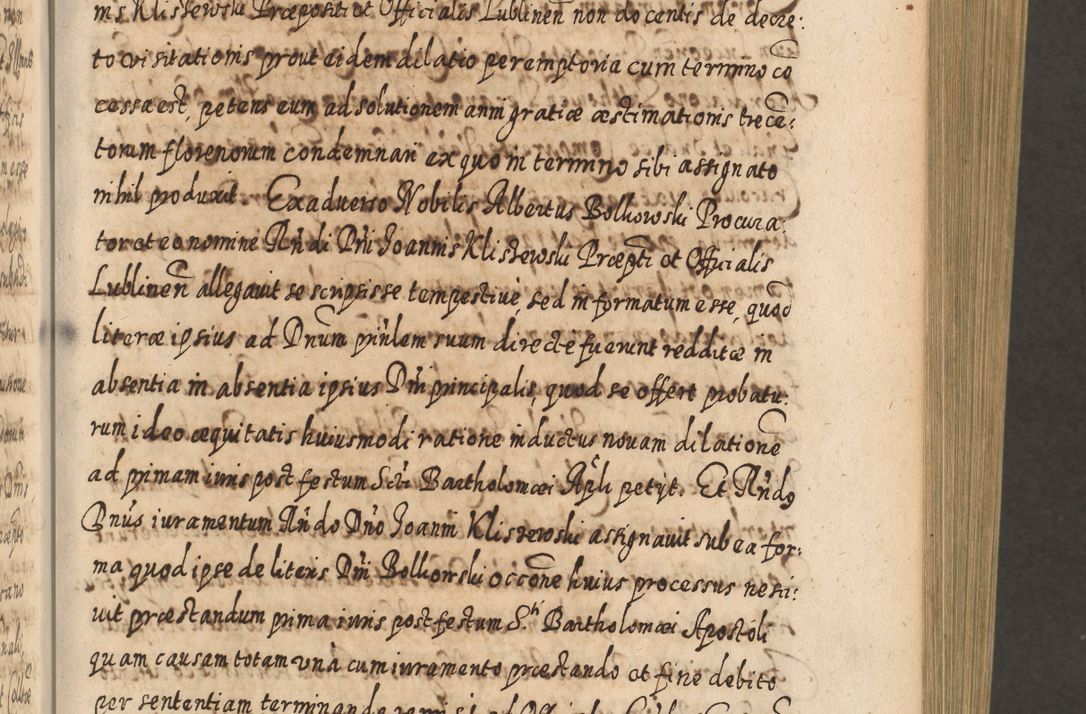 nis Klistewski Præpositi et Officialis Lublinen̄ non docentis de decre:
to visitationis prout eidem dilatio peremptoria cum termino co
cessa est, petens eum ad solutionem anni gratiæ æstimationis trecē:
torum florenorum condemnari ex quo in termino sibi assignato
nihil produxit. Exaduerso Nobilis Albertus Bolkowski Procura:
tor et eo nomine Rn̄di Dn̄i Joannis Klistewski Præpti et Officialis
Lublinen̄ allegauit se scripsisse tempestiue, sed informatum esse, quod
literæ ipsius ad Dnum prin̄lem suum directe fuerunt redditæ in
absentia in absentia ipsius Dn̄i principalis, quod se offert probatu:
rum ideo æquitatis huiusmodi ratione inductus nouam dilationē
ad primam iuris post festum Scti Bartholomæi Apli petyt. Et Rn̄do
Dnūs iuramentum Rn̄do Dn̄o Joanni Klistewski assignauit sub ea for:
ma quod ipse de literis Dn̄i Bolkorski occōne huius processus nesci:
uit præstandum prima iuris post festum S.ti Bartholomæi Apostoli
quam causam totam vna cum iuramento præstando et fine debito
per sententiam terminando